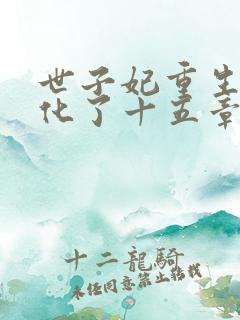 世子妃重生
化了十五章
十二龍騎
未经同意禁止转载